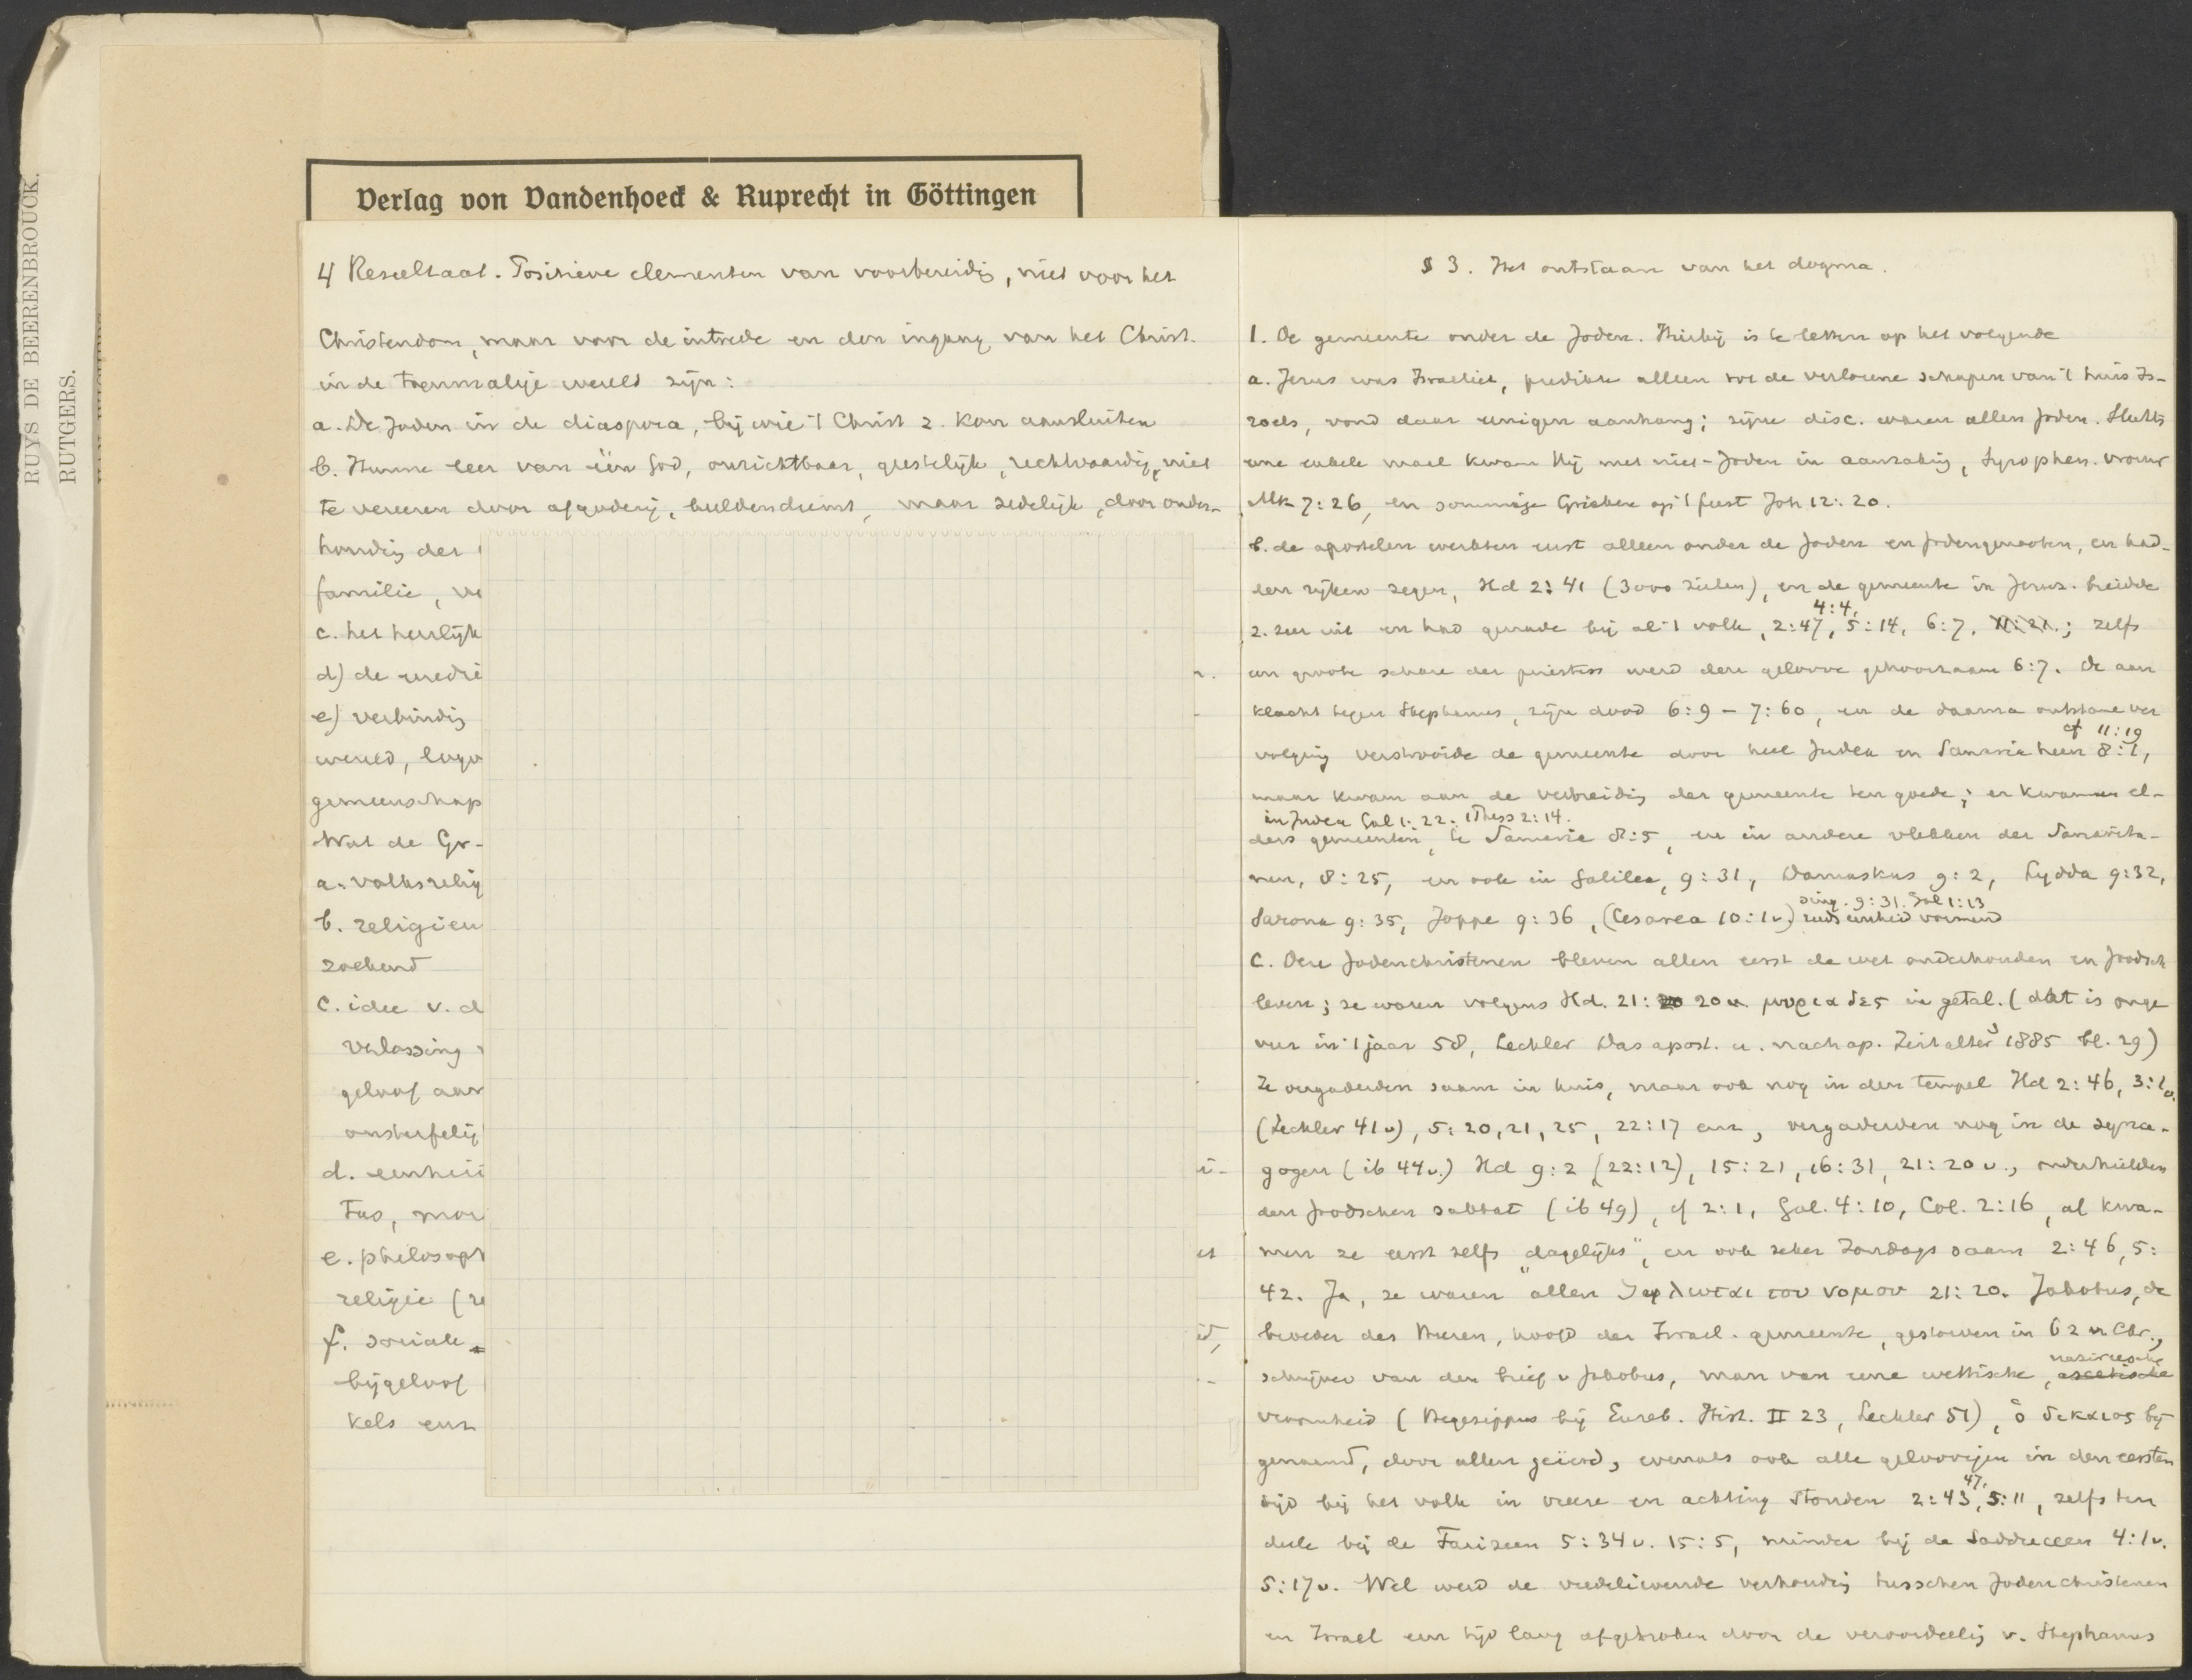 RUYS DE BEERENBROUCK.
RUTGERS.
Verlag von Vandenhoeck & Ruprecht in Göttingen
4 Resultaat. Positieve elementen van voorbereidg, niet voor het
Christendom, maar voor de intrede en den ingang van het Christ.
in de toenmalige wereld zijn:
a. De Joden in de diaspora, bij wie 't Christ z. kon aansluiten
b. Hunne leer van één God, onzichtbaar, geestelijk, rechtvaardig, niet
te vereeren door afgoderij, beeldendienst, maar zedelijk, door onder-
houdig der
familie, ve
c. het heerlijk
d) de
e) verbindig
wereld, logo
gemeenschap
Wat de Gr-
a. volksrelig
b. religieu
zoekend
c. idee v. d
verlossing
geloof aan
onsterfelij
d. eenheid
Tus, mor
e. philosoph
religie (re
f. sociale
bijgeloof
kels enz
§ 3. Het ontstaan van het dogma.
1. De gemeente onder de Joden. Hierbij is te letten op het volgende
a. Jezus was Israeliet, predikte alleen tot de verlorene schapen van 't huis Is-
raels, vond daar eenigen aanhang; zijne disc. waren allen Joden. Slechts
eene enkele maal kwam Hij met niet-Joden in aanrakig, Syrophen. vrouw
Mk 7:26, en sommige Grieken op 't feest Joh 12:20.
b. de apostelen werkten eerst alleen onder de Joden en Jodengenooten, en had-
den rijken zegen, Hd 2:41 (3000 zielen), en de gemeente in Jeruz. breidde
4:4,
z. zeer uit en had genade bij al 't volk, 2:47, 5:14, 6:7, 11:21.; zelfs
een groote schare der priesters werd den geloove gehoorzaam 6:7. De aan
klacht tegen Stephanus, zijn dood 6:9 - 7:60, en de daarna ontstane ver
cf 11:19
volging verstrooide de gemeente door heel Judea en Samaria heen 8:1,
maar kwam aan de verbreidig der gemeente ten goede; er kwamen el-
in Judea Gal 1:22. 1 Thess 2:14.
ders gemeenten, te Samaria 8:5, en in andere vlekken der Samarita-
nen, 8:25, en ook in Galilea, 9:31, Damaskus 9:2, Lydda 9:32,
sing. 9:31. Gal 1:13
Sarona 9:35, Joppe 9:36, (Cesarea 10:1v) reeds eenheid vormend
c. Deze Jodenchristenen bleven allen eerst de wet onderhouden en Joodsch
leven; ze waren volgens Hd. 21: 20 v. μυριαδες in getal. (dat is onge
veer in 't jaar 58, Lechler Das apost. u. nachap. Zeitalter³ 1885 bl. 29)
Ze vergaderden saam in huis, maar ook nog in den tempel Hd 2:46, 3:1v.
(Lechler 41v), 5:20,21,25, 22:17 enz, vergaderden nog in de syna-
gogen (ib 44v.) Hd 9:2 (22:12), 15:21, 16:31, 21:20 v., onderhielden
den Joodschen sabbat (ib 49), cf 2:1, Gal. 4:10, Col. 2:16, al kwa-
men ze eerst zelfs „dagelijks", en ook zeker Zondags saam 2:46, 5:
42. Ja, ze waren allen ζηλωται του νομου 21:20. Jakobus, de
broeder des Heeren, hoofd der Israel. gemeente, gestorven in 62 n Chr.,
nazireesche
schrijver van den brief v Jakobus, man van eene wettische, ascetische
vroomheid (Hegesippus bij Euseb. Hist. II 23, Lechler 51), ὁ δικαιος bij
genaamd, door allen geëerd, evenals ook alle geloovigen in den eersten
47,
tijd bij het volk in vreeze en achting stonden 2:43, 5:11, zelfs ten
deele bij de Farizeen 5:34v. 15:5, minder bij de Sadduceeen 4:1v.
5:17v. Wel werd de vredelievende verhoudig tusschen Jodenchristenen
en Israel een tijd lang afgebroken door de veroordeelig v. Stephanus